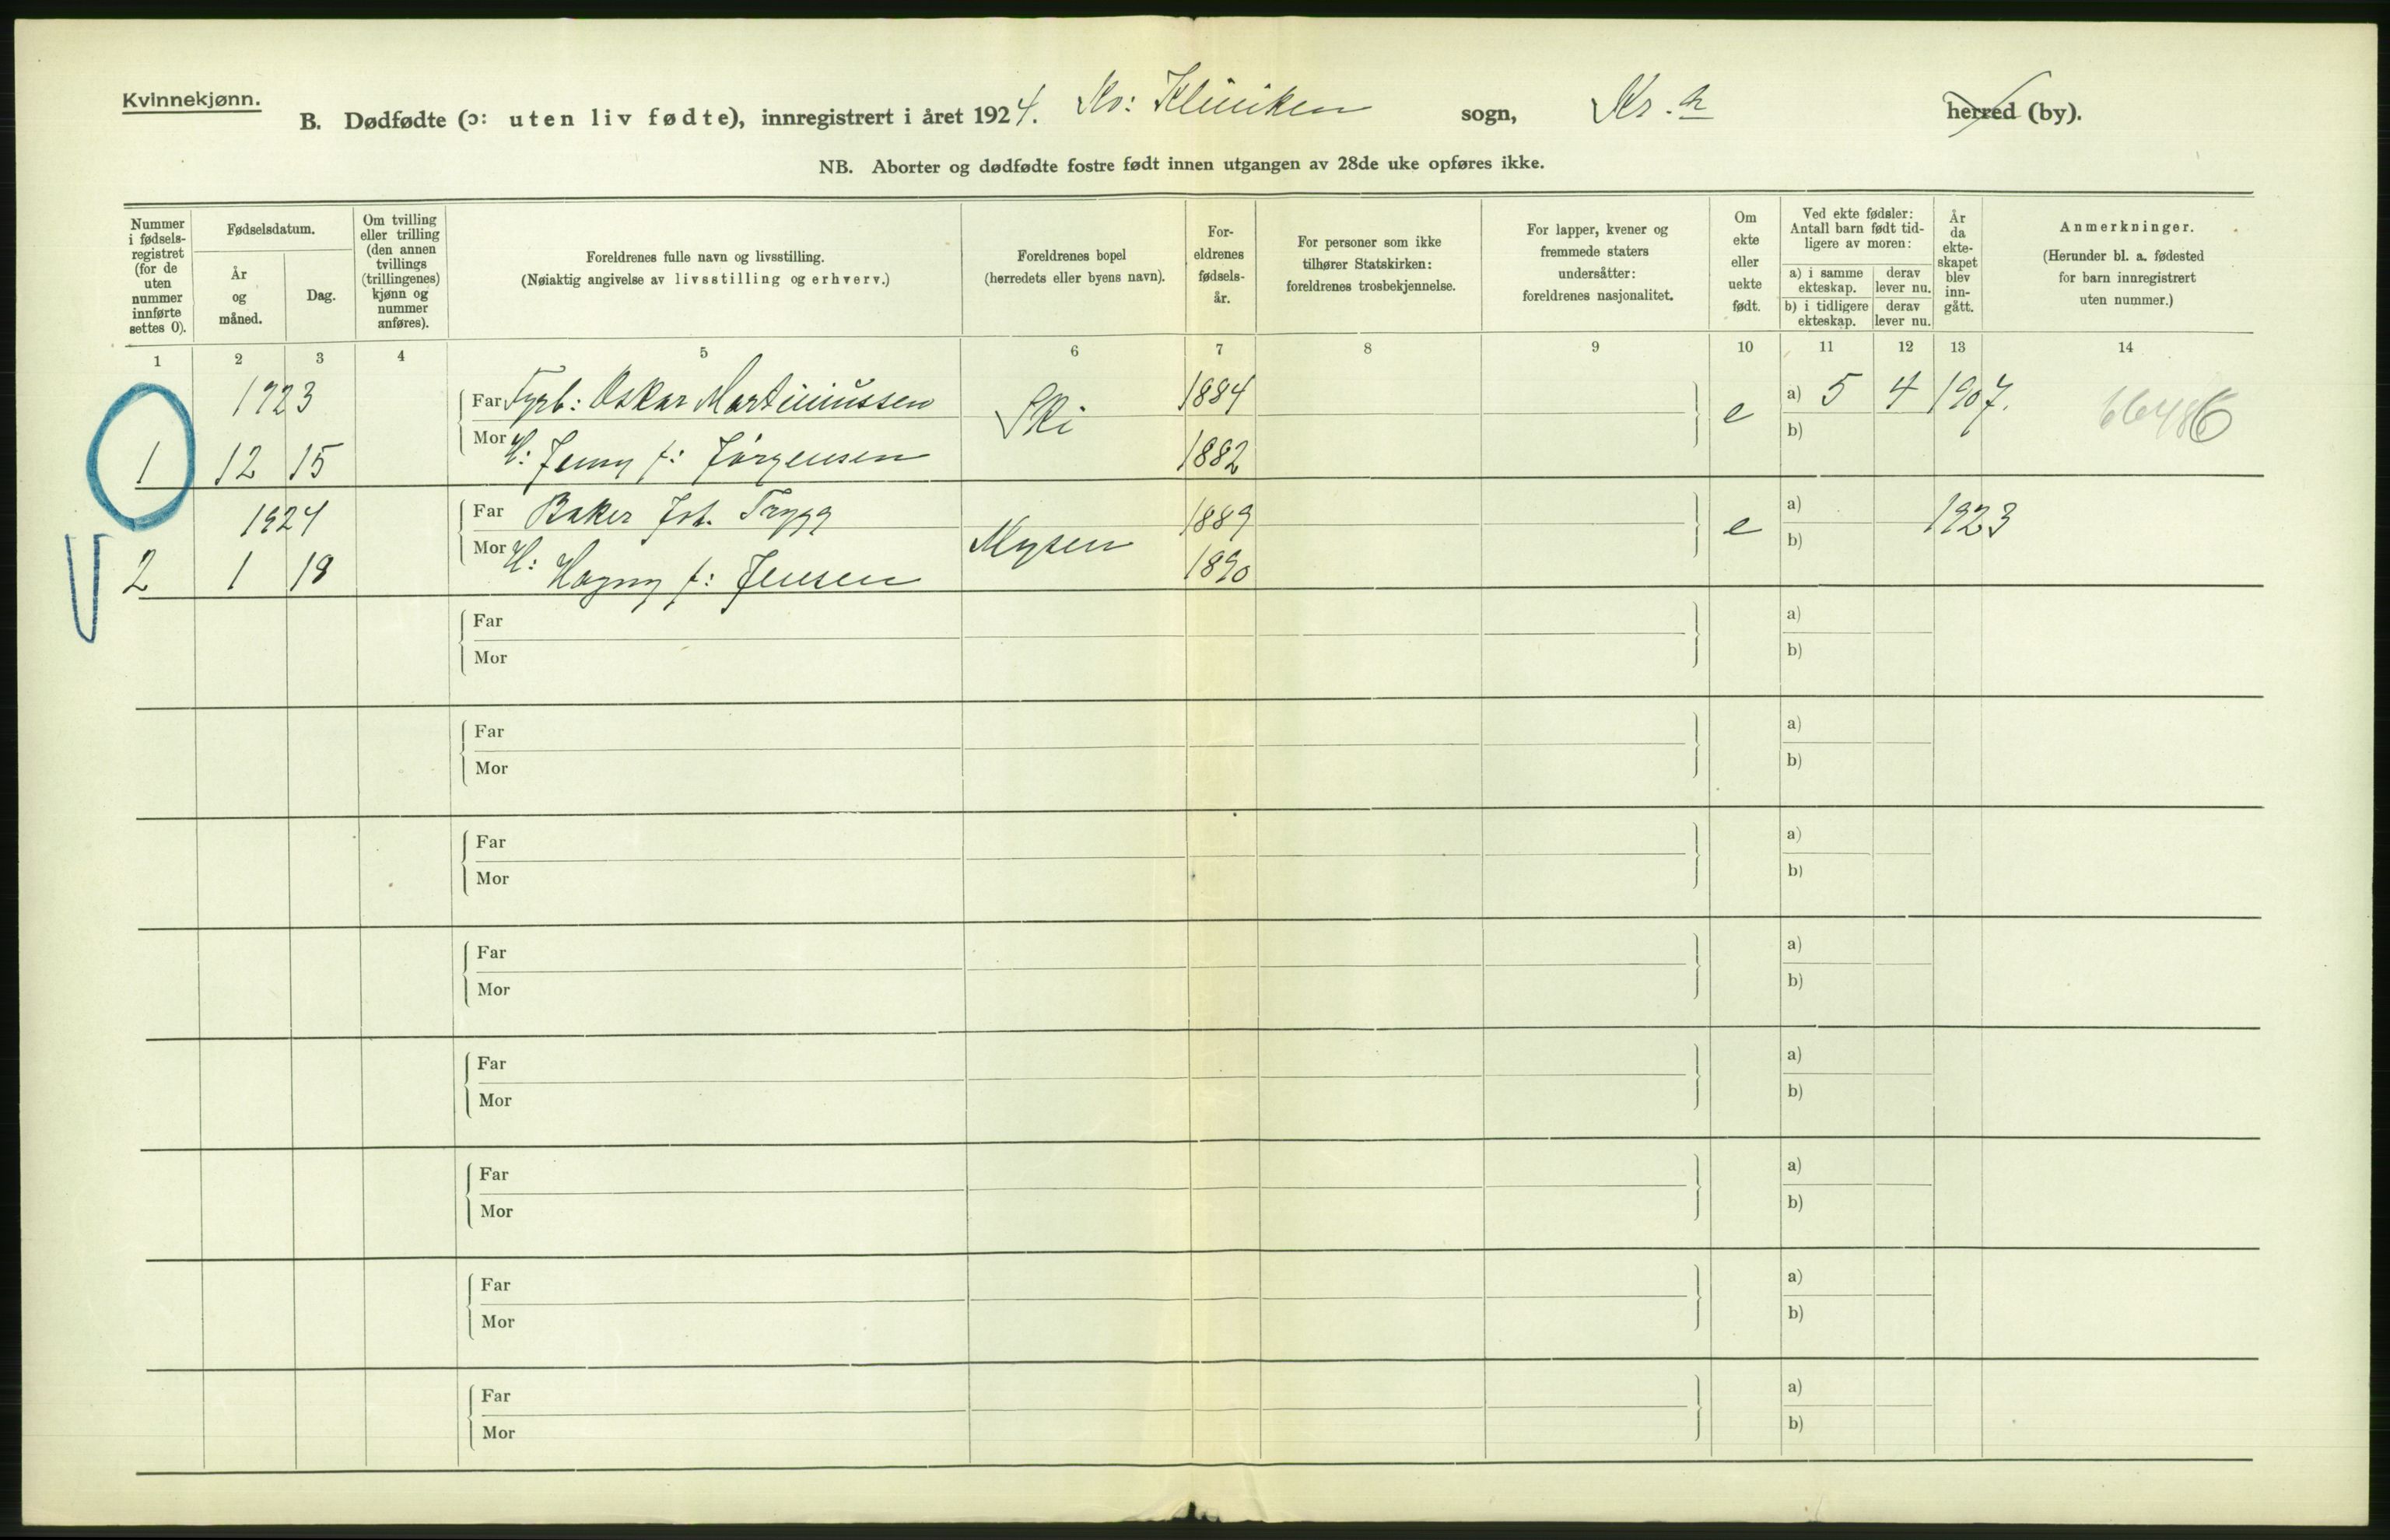 Kvinnekjønn.
B. Dødfødte (ɔ: uten liv fødte), innregistrert i året 1924. Kv: Kliniken sogn, Kr.a herred (by).
NB. Aborter og dødfødte fostre født innen utgangen av 28de uke opføres ikke.
Nummer i fødsels-registret (for de uten nummer innførte settes 0).
Fødselsdatum.
År og måned.
Dag.
Om tvilling eller trilling (den annen tvillings (trillingenes) kjønn og nummer anføres).
Foreldrenes fulle navn og livsstilling.
(Nøiaktig angivelse av livsstilling og erhverv.)
Foreldrenes bopel
(herredets eller byens navn).
For-eldrenes fødsels-år.
For personer som ikke tilhører Statskirken: foreldrenes trosbekjennelse.
For lapper, kvener og fremmede staters undersåtter: foreldrenes nasjonalitet.
Om ekte eller uekte født.
Ved ekte fødsler: Antall barn født tid-ligere av moren:
a) i samme ekteskap.
derav lever nu.
b) i tidligere ekteskap.
derav lever nu.
År da ekte-skapet blev inn-gått.
Anmerkninger.
(Herunder bl. a. fødested for barn innregistrert uten nummer.)
1 2 3 4 5 6 7 8 9 10 11 12 13 14
1923 Far Fyrb: Oskar Martiniussen Ski 1884 e a) 5 4 1907. 66486
1 12 15 Mor H: Jenny f: Jörgensen 1882 b)
1924 Far Baker Joh. Trygg Mysen 1889 e a) 1923
2 1 18 Mor H: Hagny f: Jensen 1890 b)
Far a)
Mor b)
Far a)
Mor b)
Far a)
Mor b)
Far a)
Mor b)
Far a)
Mor b)
Far a)
Mor b)
Far a)
Mor b)
Far a)
Mor b)